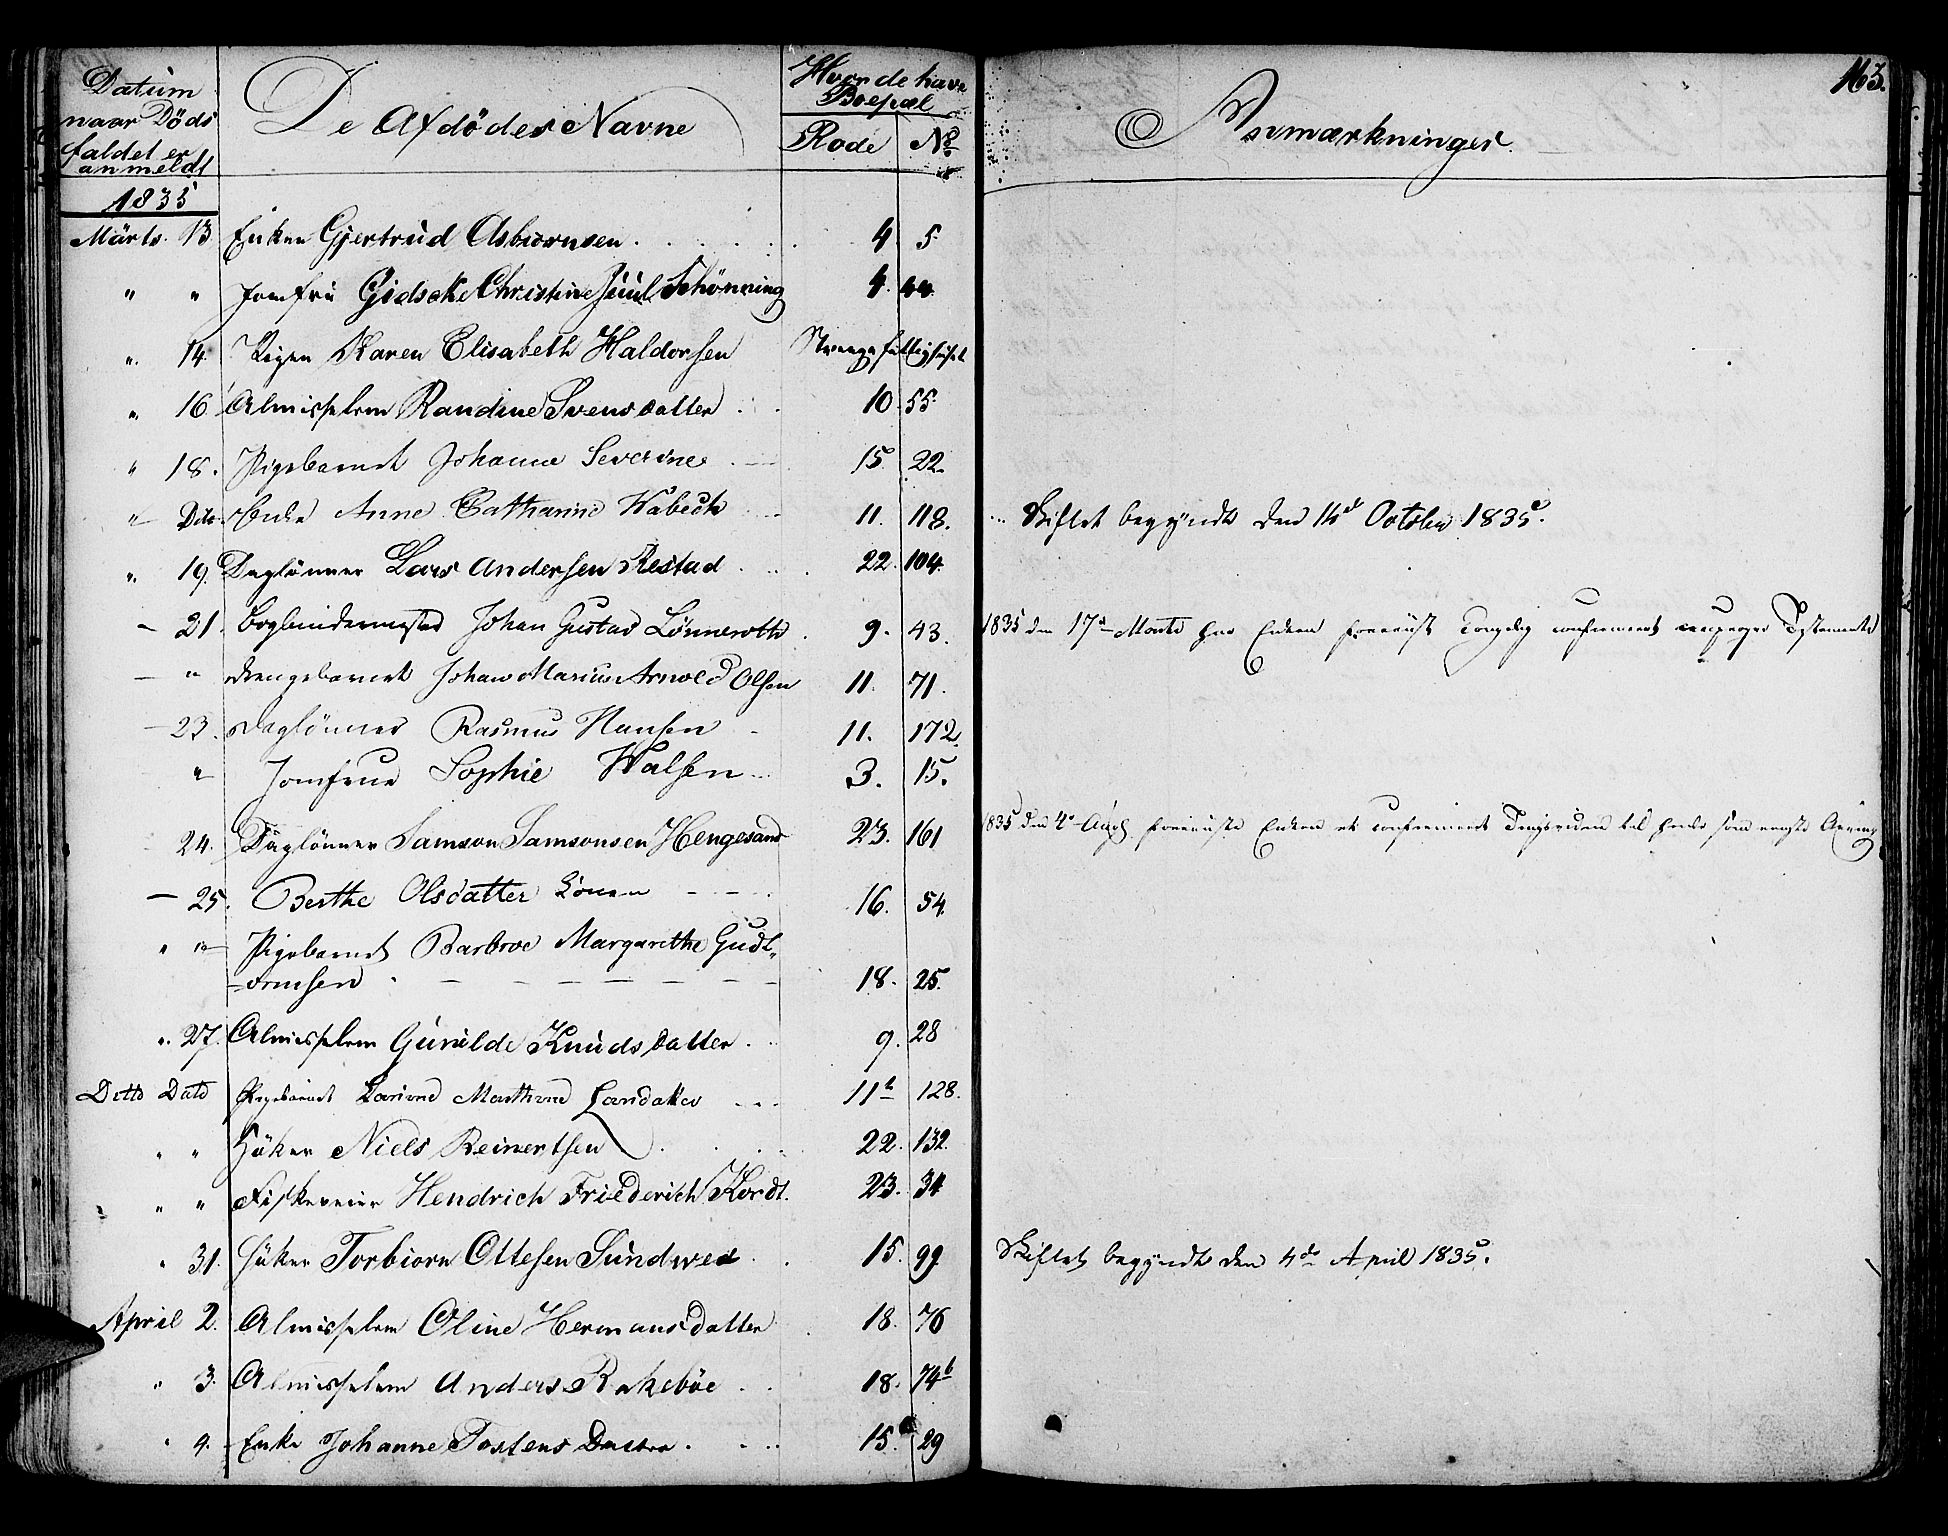 Datum
naar Døds
faldet er
anmeldt
De Afdødes Navne
Hvor de have
Boepæl
Rode No
Anmærkninger
163.
1835
Märts. 13 Enken Gjertrud Asbiørnsen 4. 5.
" " Jomfru Gidscke Christine Juul Schönning 4. 44.
". 14. Pigen Karen Elisabeth Haldorsen Strangefattighuset
". 16 Almisselem Randine Svensdatter 10. 55.
" 18. Pigebarnet Johanne Severine 15. 22.
" Dito Enke Anne Catharine Wabeck 11. 118. Skiftet begyndt den 14d October 1835.
". 19. Daglönner Lars Andersen Restad 22. 104.
- 21. Bogbindermester Johan Gustav Lönneroth 9. 43. 1835 den 17d Marts har Enken foreviist Kongelig confirmeret Testamente
- " Drengebarnet Johan Marius Arnold Olsen 11. 71.
- 23. Daglönner Rasmus Hansen 11. 172.
" Jomfrue Sophie Walsen 3. 15.
24. Daglönner Samson Samsonsen Hengesand 23. 161 1835 den 4d Aug foreviiste Enken et confirmeret til hende som eneste Arving
- 25. Berthe Olsdatter Lönen 16. 54.
" " Pigebarnet Barbroe Margarethe Gudt-
ormsen 18. 25.
". 27. Almisselem Gunilde Knudsdatter 9. 28
Ditto Dato Pigebarnet Larine Marthine Landaker 11b 128.
" " Höker Niels Reinertsen 22. 132.
" " Fiskeveier Hendrich Friederich Kordt. 23. 34
" 31. Höker Torbiörn Ottesen Sundwed 15. 99. Skiftet begyndt den 4de April 1835.
April 2. Almisselem Oline Hermansdatter 18. 76
" 3. Almisselem Anders Rakeböe 18. 74b
" 4. Enke Johanne Tostens Datter 15. 29